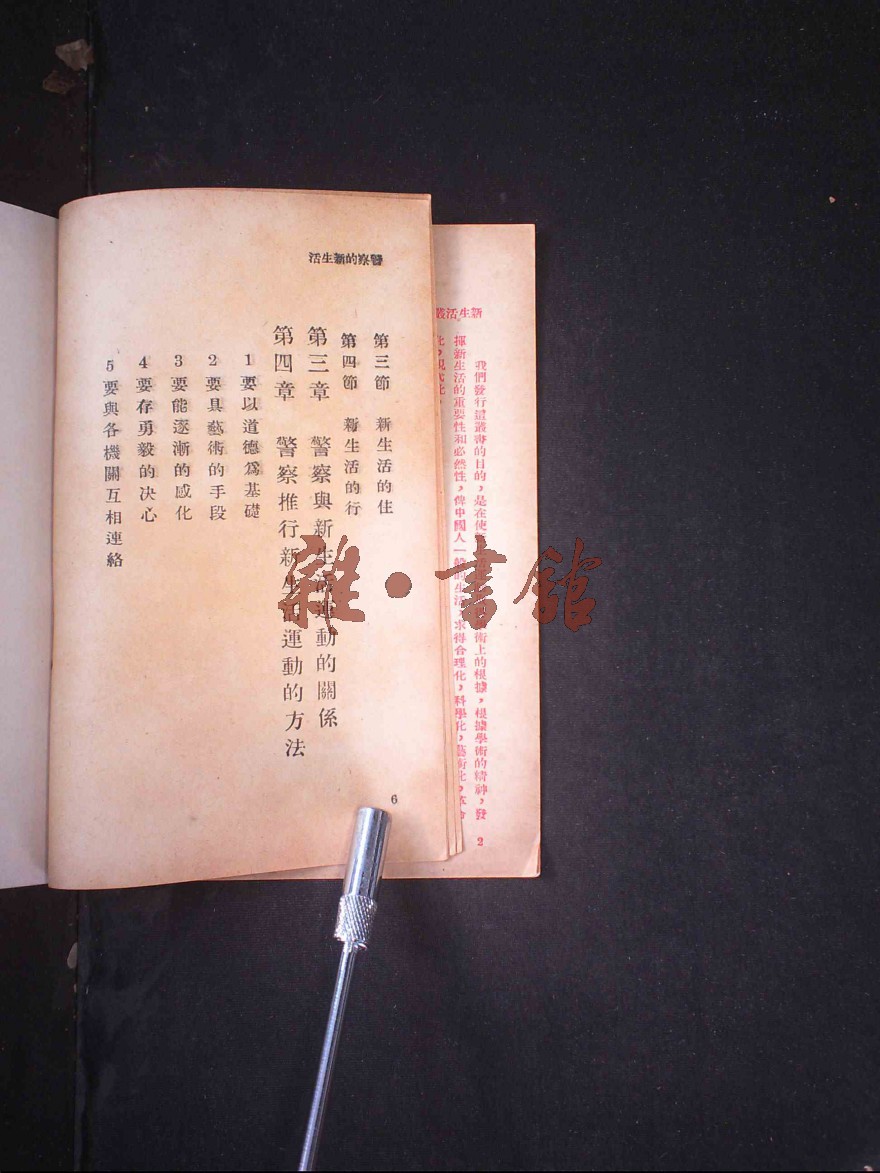 警察的新生活
第三節　新生活的住
第四節　新生活的行
第三章　警察與新生活運動的關係
第四章　警察推行新生活運動的方法
1要以道德爲基礎
2要具藝術的手段
3要能逐漸的感化
4要存勇毅的決心
5要與各機關互相連絡
6
新生活叢
我們發行這叢書的目的，是在使
術上的根據，根據學術的精神，發
揮新生活的重要性和必然性，俾中國人一般的生活，求得合理化，科學化，藝術化，
化，現代化。
2
雜·書館